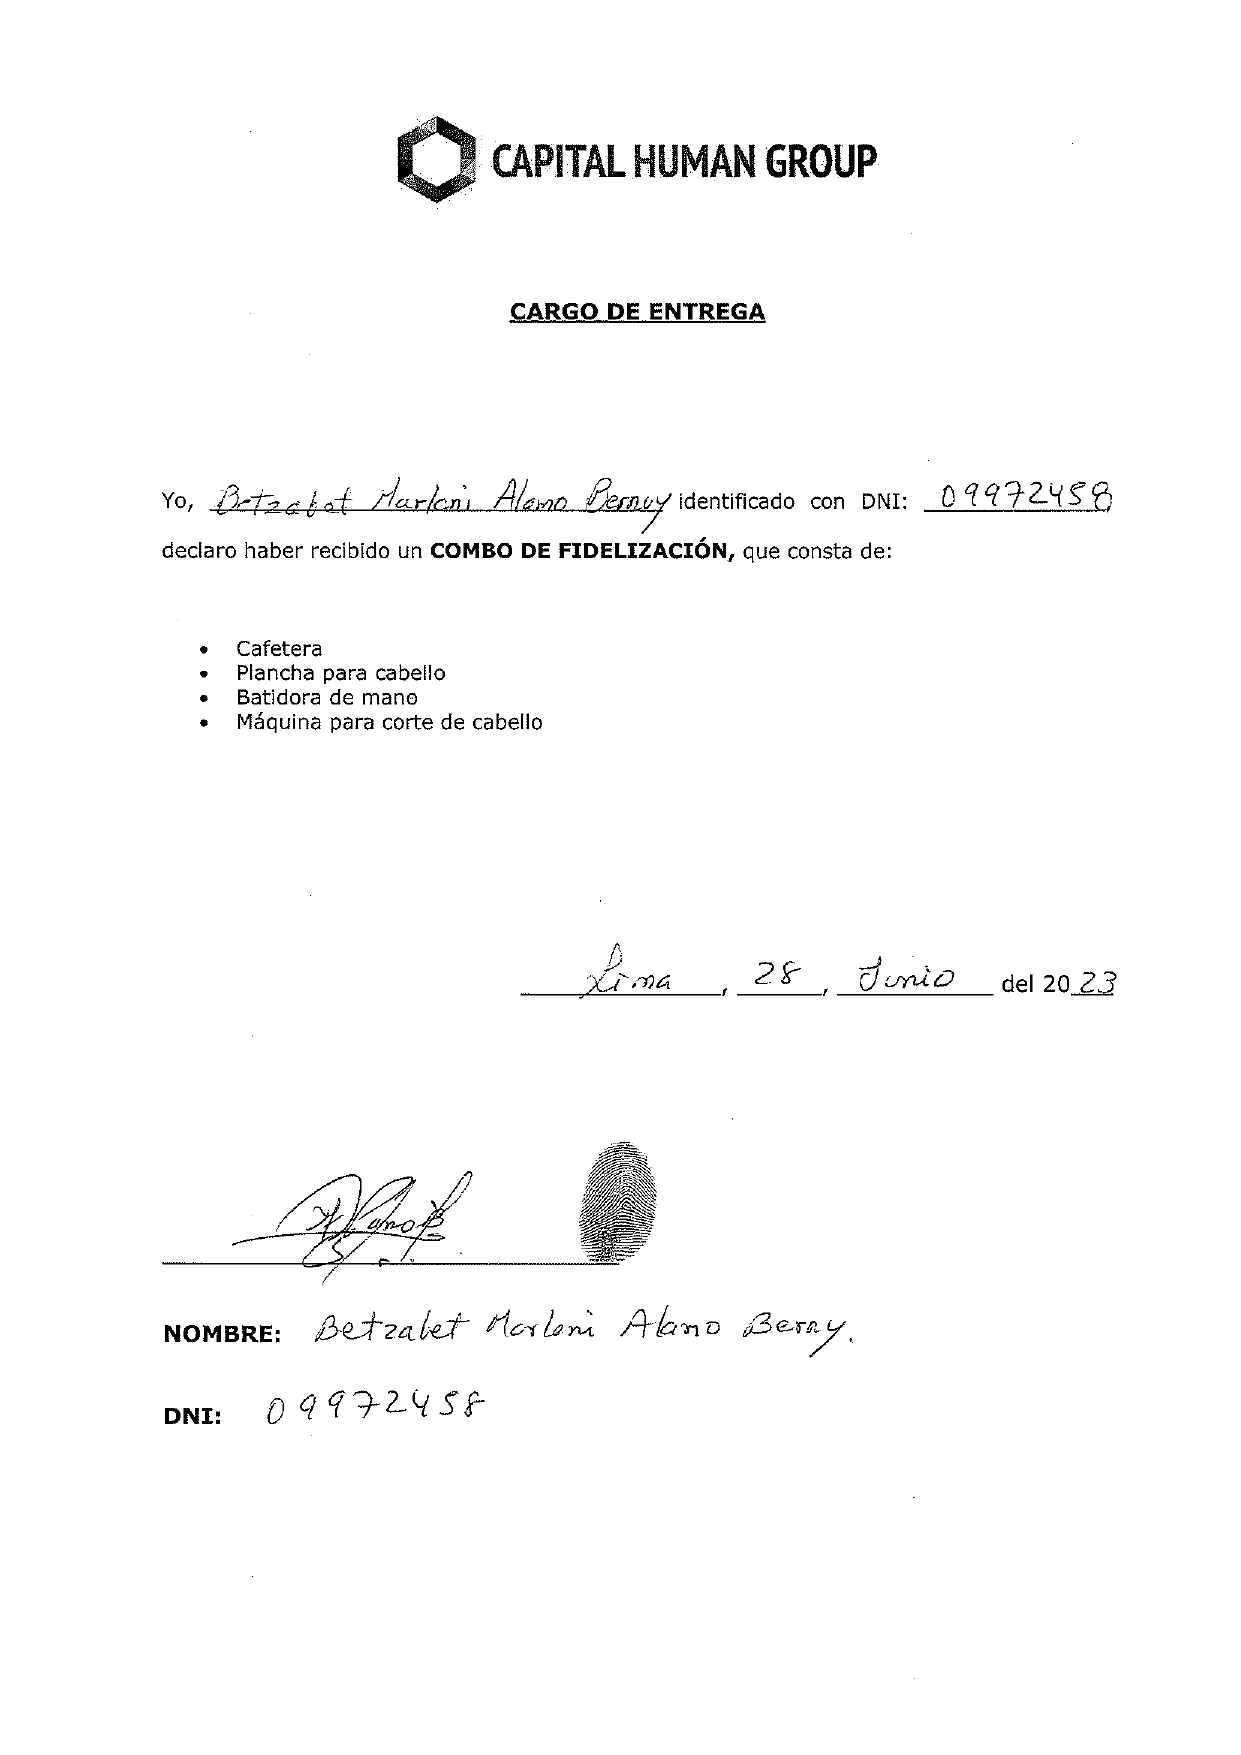 CAPITAL HUMAN GROUP
CARGO DE ENTREGA
Yo, Betzabet Marleni Alamo Bernuy identificado con DNI: 09972458
declaro haber recibido un COMBO DE FIDELIZACIÓN, que consta de:
• Cafetera
• Plancha para cabello
• Batidora de mano
• Máquina para corte de cabello
Lima, 28, Junio del 2023
NOMBRE: Betzabet Marleni Alamo
DNI: 09972458